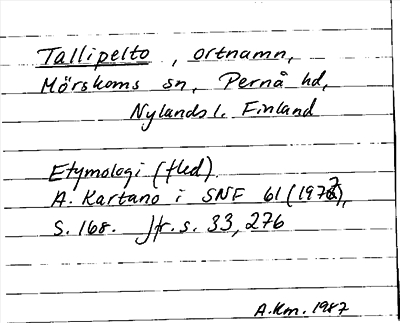 Tallipelto, ortnamn,
Mörskoms sn, Pernå hd,
Nylands l. Finland
Etymologi (fled).
A. Kartano i SNF 61 (1972),
S. 168. Jfr. s. 33, 276
A.Km. 1987